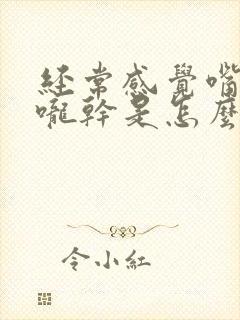 經常感覺嘴
嚨幹是怎麼
令小紅